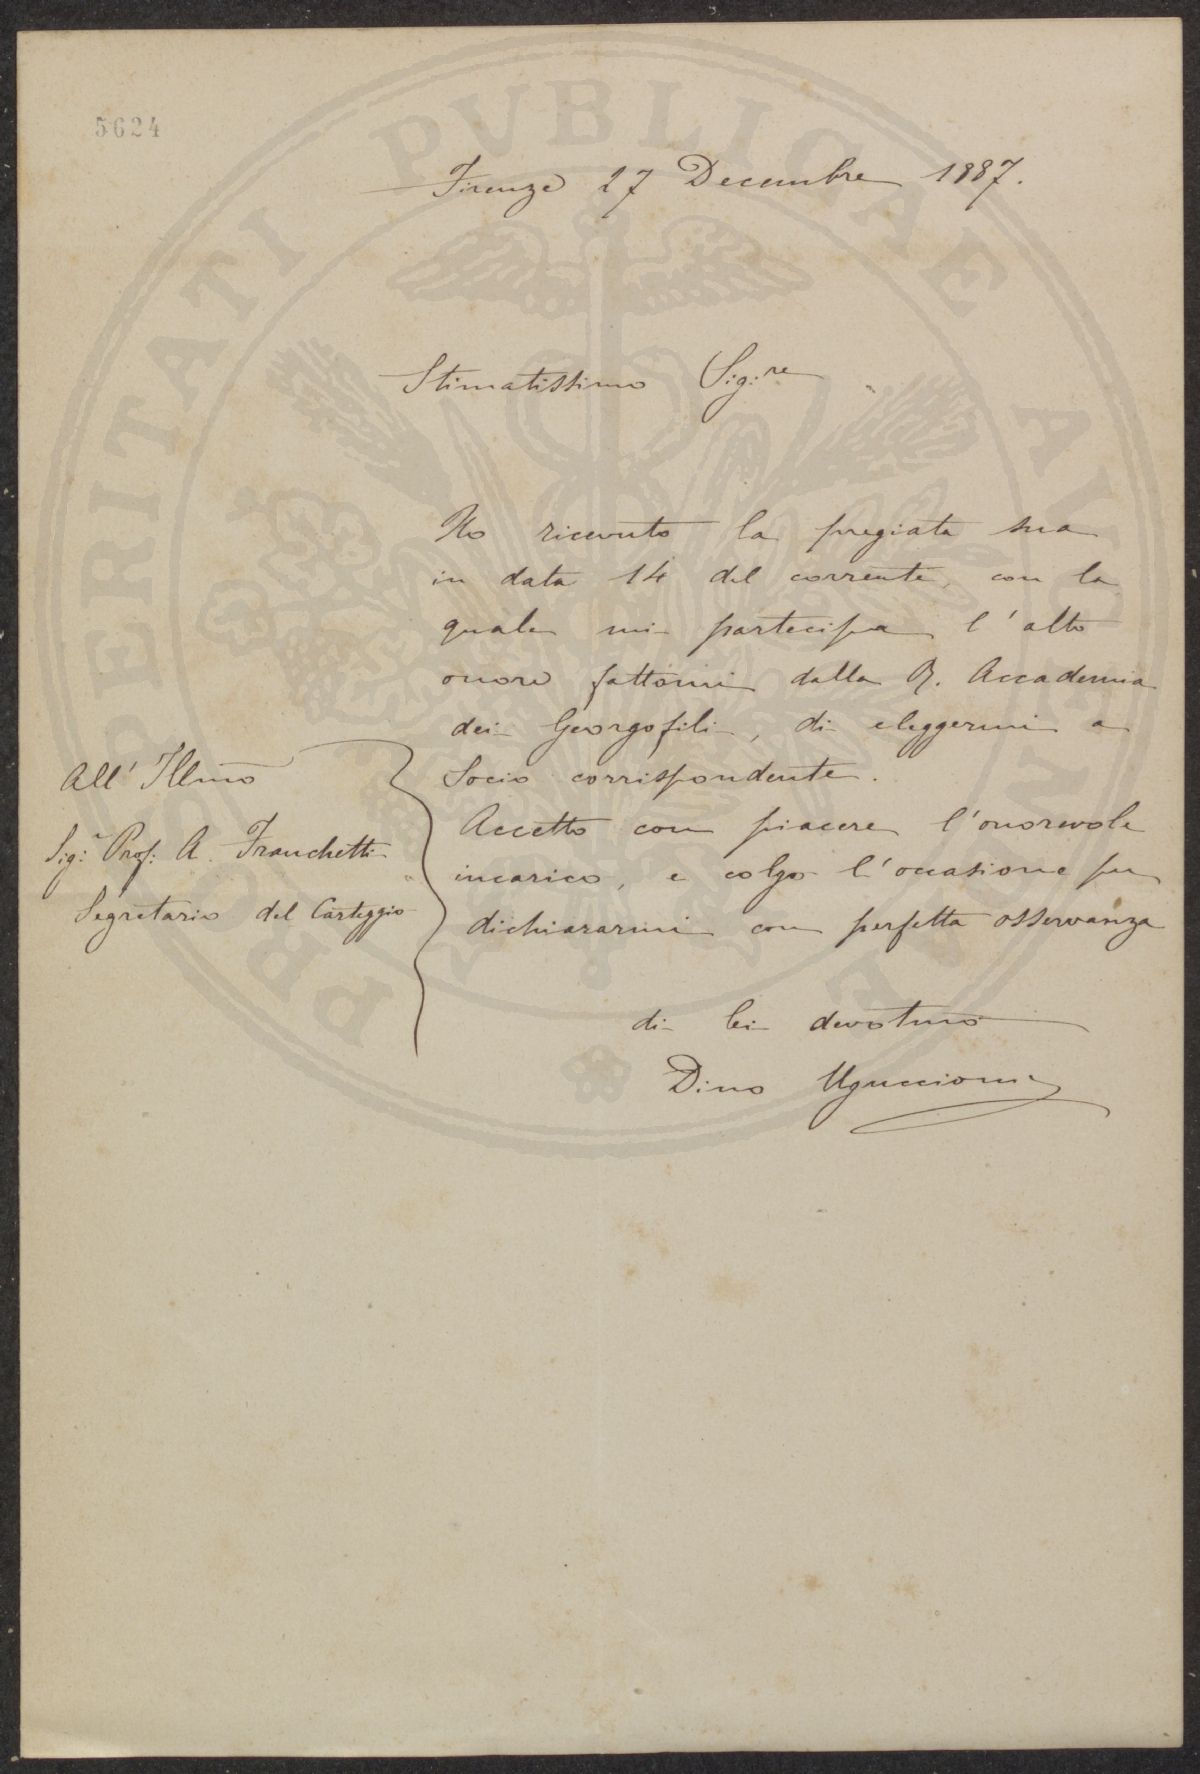 5624
Firenze 27 Decembre 1887.
Stimatissimo Sig:re
Ho ricevuto la pregiata sua
in data 14 del corrente, con la
quale mi partecipa l'alto
onore fattomi dalla R. Accademia
dei Georgofili, di eleggermi a
Socio corrispondente.
Accetto con piacere l'onorevole
incarico, e colgo l'occasione per
dichiararmi con perfetta osservanza
di lei devotmo
Dino Uguccioni
All' Illmo
Sig: Prof: A. Franchetti
Segretario del Carteggio
PROSPERITATI PVBLICAE AVGENDAE